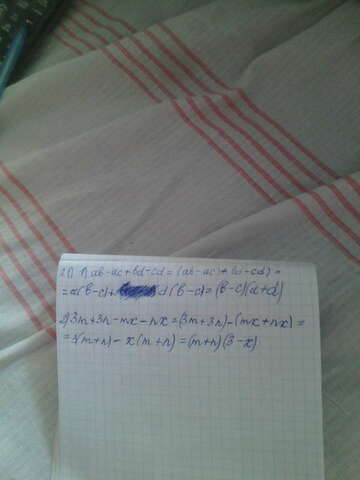 21) 1) ab-ac+bd-cd=(ab-ac)+(bd-cd)=
=a(b-c)+d(b-c)=(b-c)(a+d)
2) 3m+3n-mx-nx=(3m+3n)-(mx+nx)=
=3(m+n)-x(m+n)=(m+n)(3-x)